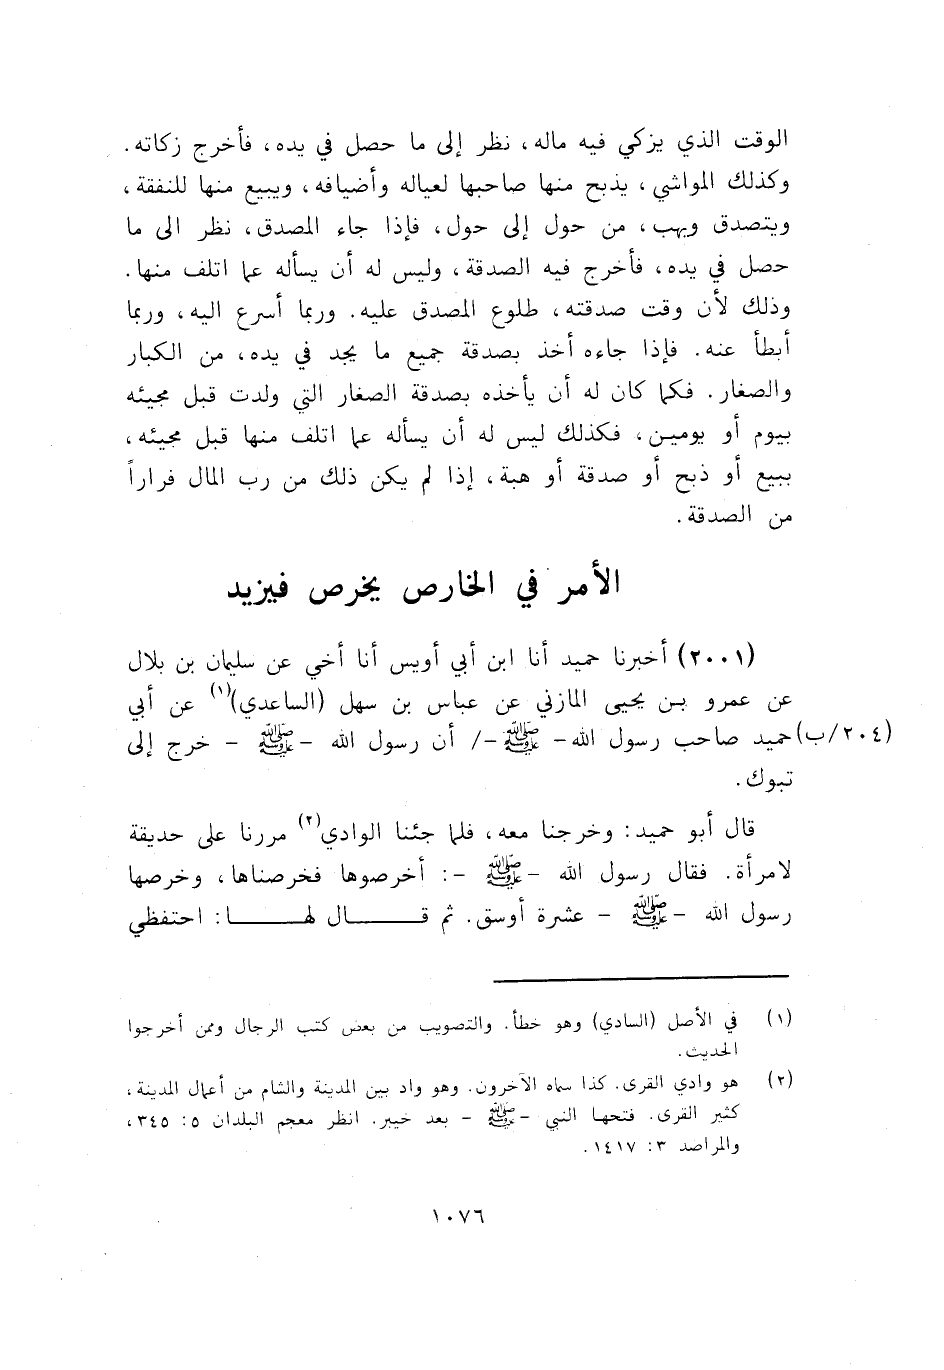 الوقت الذي يزكي فيه ماله، نظر إلى ما حصل في يده، فأخرج زكاته.
وكذلك المواشي، يذبح منها صاحبها لعياله وأضيافه، ويبيع منها للنفقة،
ويتصدق ويهب، من حول إلى حول، فإذا جاء المصدق، نظر الى ما
حصل في يده، فأخرج فيه الصدقة، وليس له أن يسأله عما اتلف منها.
وذلك لأن وقت صدقته، طلوع المصدق عليه. وربما أسرع اليه، وربما
أبطأ عنه. فإذا جاءه أخذ بصدقة جميع ما يجد في يده، من الكبار
والصغار. فكما كان له أن يأخذه بصدقة الصغار التي ولدت قبل مجيئه
بيوم أو يومين، فكذلك ليس له أن يسأله عما اتلف منها قبل مجيئه،
ببيع أو ذبح أو صدقة أو هبة، إذا لم يكن ذلك من رب المال فراراً
من الصدقة.
الأمر في الخارص يخرص فيزيد
(٢٠٠١) أخبرنا حميد أنا ابن أبي أويس أنا أخي عن سليمان بن بلال
عن عمرو بن يحيى المازني عن عباس بن سهل (الساعدي)(١) عن أبي
(٢٠٤/ب) حميد صاحب رسول الله - ﷺ -/ أن رسول الله - ﷺ - خرج إلى
تبوك.
قال أبو حميد: وخرجنا معه، فلما جئنا الوادي(٢) مررنا على حديقة
لامرأة. فقال رسول الله - ﷺ -: أخرصوها فخرصناها، وخرصها
رسول الله - ﷺ - عشرة أوسق. ثم قـــــال لهـــــا: احتفظي
(١) في الأصل (السادي) وهو خطأ. والتصويب من بعض كتب الرجال وممن أخرجوا
الحديث.
(٢) هو وادي القرى. كذا سماه الآخرون. وهو واد بين المدينة والشام من أعمال المدينة،
كثير القرى. فتحها النبي - ﷺ - بعد خيبر. انظر معجم البلدان ٥: ٣٤٥،
والمراصد ٣: ١٤١٧.
١٠٧٦